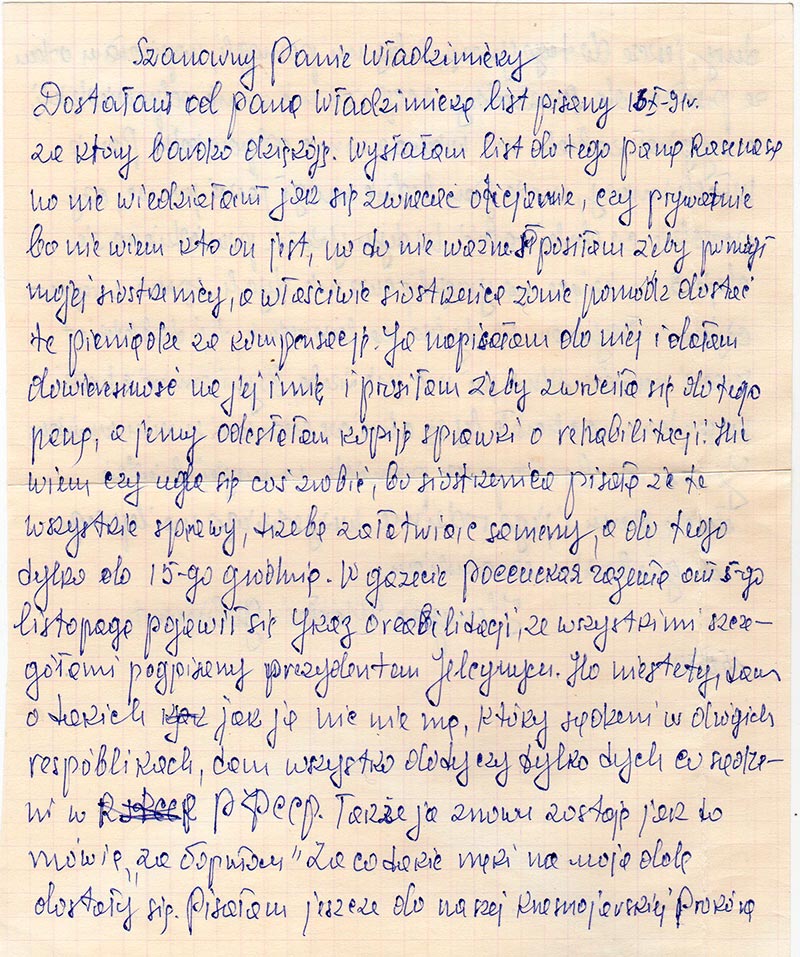 Szanowny Panie Władzimieży
Dostałam od pana Władzimieża list pisany 13 XI-91r.
za który bardzo dziękóję. Wysłałam list do tego pana
no nie wiedziałam jak się zwracać oficjanie, czy prywatnie
bo nie wiem kto on jest, no to nie ważne. Prosiłam żeby pomógł
mojej siostrzenicy, a właściwie siostrzeńca żonie pomódz dostać
te pieniądze za kompensację. Ja napisałam do niej i dałam
dowierenność na jej imię i prosiłam żeby zwrociła się do tego
pana, a jemy odesłałam kópiję sprawki o rehabilitacji. Nie
wiem czy uda się coś zrobić, bo siostrzenica pisała że te
wszystkie sprawy, trzeba załatwiać samemy, a do tego
tylko do 15-go grudnia. W gazecie Российская газета от 5-go
listopada pojawił się Укаz o reabilitacji, ze wszystkimi szcze-
gółami podpisany prezydentem Jelcynym. No niestety, tam
o takich jak ja nic nie ma, któży sądzeni w drógich
respóblikach, tam wszystko dotyczy tylko tych co sądze-
ni w РФССР. Także ja znowu zostaję jak to
mówią „za бортом" Za co takie męki na moją dolę
dostały się. Pisałam jeszcze do naszej Krasnojarskiej Prokóra